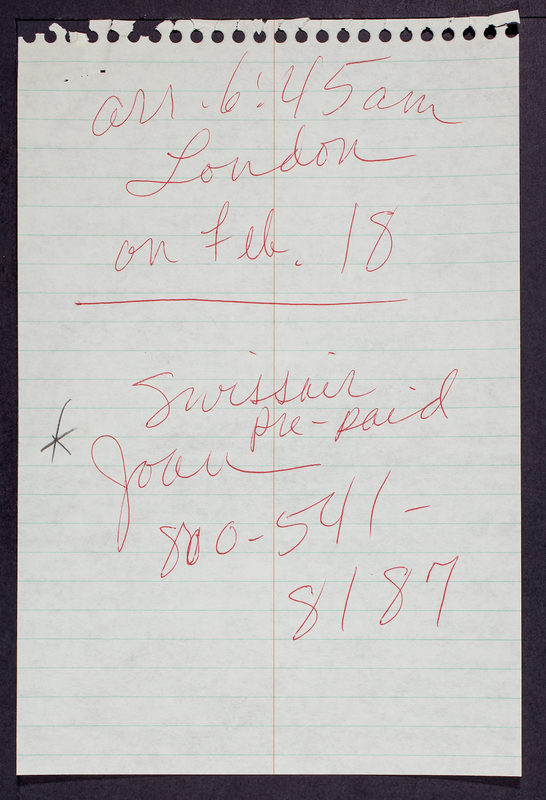 arr. 6:45 am
London
on Feb. 18
Swissair
pre-paid
* Joan
800-541-
8187